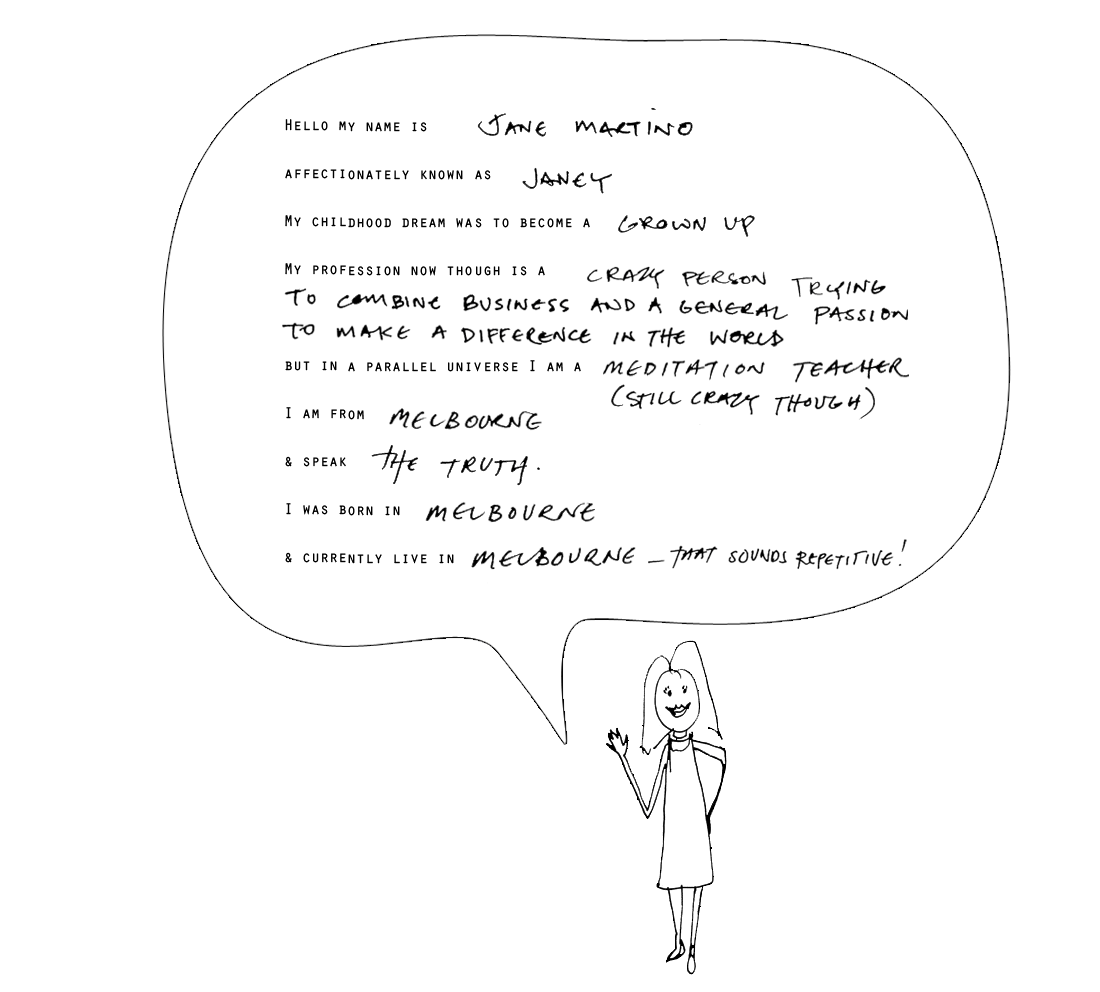 Hello my name is JANE MARTINO
affectionately known as JANEY
My childhood dream was to become a GROWN UP
My profession now though is a CRAZY PERSON TRYING
TO COMBINE BUSINESS AND A GENERAL PASSION
TO MAKE A DIFFERENCE IN THE WORLD
but in a parallel universe I am a MEDITATION TEACHER
(STILL CRAZY THOUGH)
I am from MELBOURNE
& speak THE TRUTH.
I was born in MELBOURNE
& currently live in MELBOURNE – THAT SOUNDS REPETITIVE!